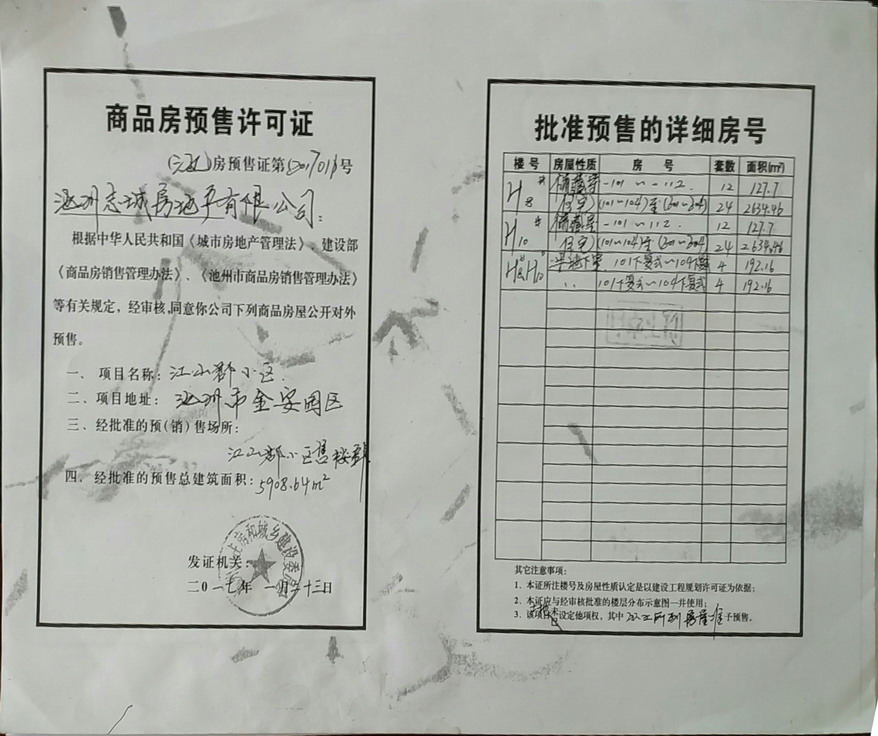 商品房预售许可证
房预售证第(2017011)号
池州志城房地产有限公司：
根据中华人民共和国《城市房地产管理法》、建设部
《商品房销售管理办法》、《池州市商品房销售管理办法》
等有关规定，经审核，同意你公司下列商品房屋公开对外
预售。
一、项目名称：江山郡小区
二、项目地址：池州市金安园区
三、经批准的预(销)售场所：
江山郡小区售楼部
四、经批准的预售总建筑面积：5908.64m²
发证机关：
二0一七年 一月二十三日
批准预售的详细房号
楼号 房屋性质 房号 套数 面积(m²)
H8# 储藏室 -101~-112 12 127.7
住宅 (101~104)至(301~304) 24 2634.46
H10# 储藏室 -101~-112 12 127.7
住宅 (101~104)至(301~304) 24 2634.46
H8#H10# 半地下室 101下复式~104下复式 4 192.16
〃 101下复式~104下复式 4 192.16
其它注意事项：
1、本证所注楼号及房屋性质认定是以建设工程规划许可证为依据；
2、本证应与经审核批准的楼层分布示意图一并使用；
3、该项目未设定他项权，其中以上所列房屋准予预售。